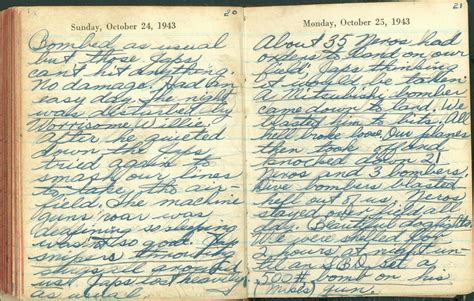 20
Sunday, October 24, 1943
Bombed as usual
but those Japs
can't hit anything.
No damage. Had an
easy day. The night
was disturbed by
Worrisome Willie.
After he quieted
down the Japs
tried again to
smash our lines
to take the air-
field. The machine
guns roar was
deafening so sleeping
was not so good. Jap
snipers
Japs lost heavily
as usual.
21
Monday, October 25, 1943
About 35 Zeros had
orders to land on our
field, Japs thinking
it would be taken.
A Mitsubishi bomber
came down to land. We
blasted him to bits. All
hell broke loose. Our planes
then took off and
knocked down 21
Zeros and 3 bombers.
Dive bombers blasted
hell out of us. Zeros
stayed over field all
day. Beautiful dog fights.
We were shelled for
2 hours at night
500# bomb on his
gun.